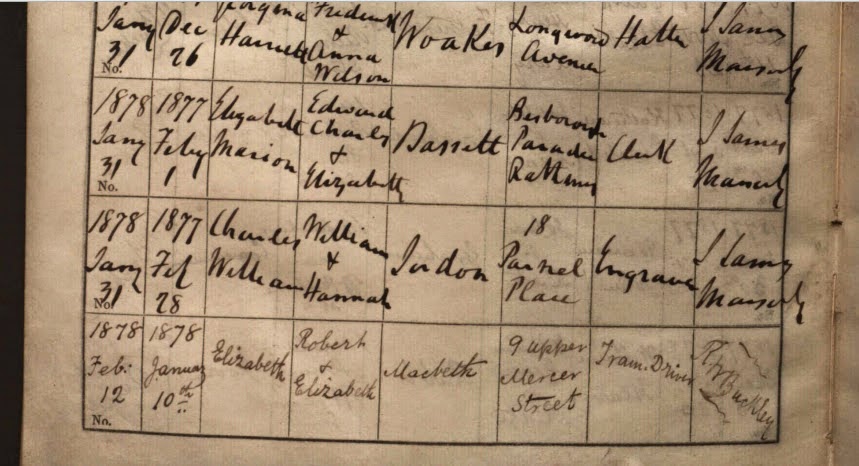 Jany
31
No.
Dec
26
Georgina
Harriett
Frederick
&
Anna
Wilson
Woakes
Longwood
Avenue
Hatter
J James
1878
Jany
31
No.
1877
Feby
1
Elizabeth
Marion
Edward
Charles
&
Elizabeth
Bassett
Besborough
Parade
Rathmines
Clerk
J James
1878
Jany
31
No.
1877
Feb
28
Charles
William
William
&
Hannah
Jordon
18
Parnel
Place
Engraver
J James
1878
Feb:
12
No.
1878
January
10th
Elizabeth
Robert
&
Elizabeth
Macbeth
9 upper
Mercer
Street
Tram. Driver
Buckley